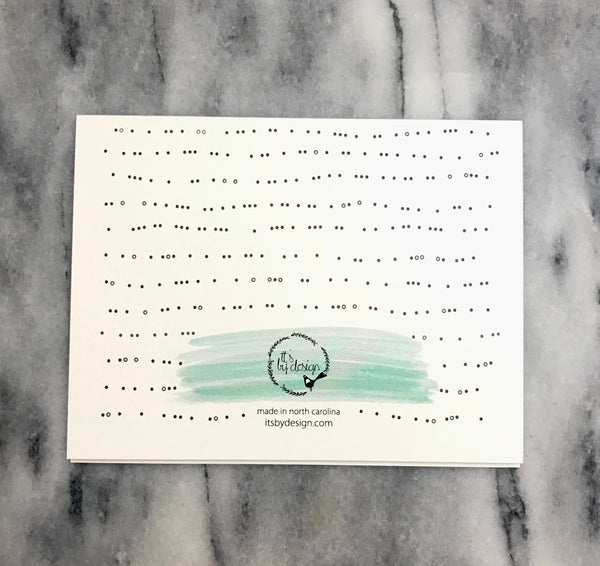 it's
by design
made in north carolina
itsbydesign.com